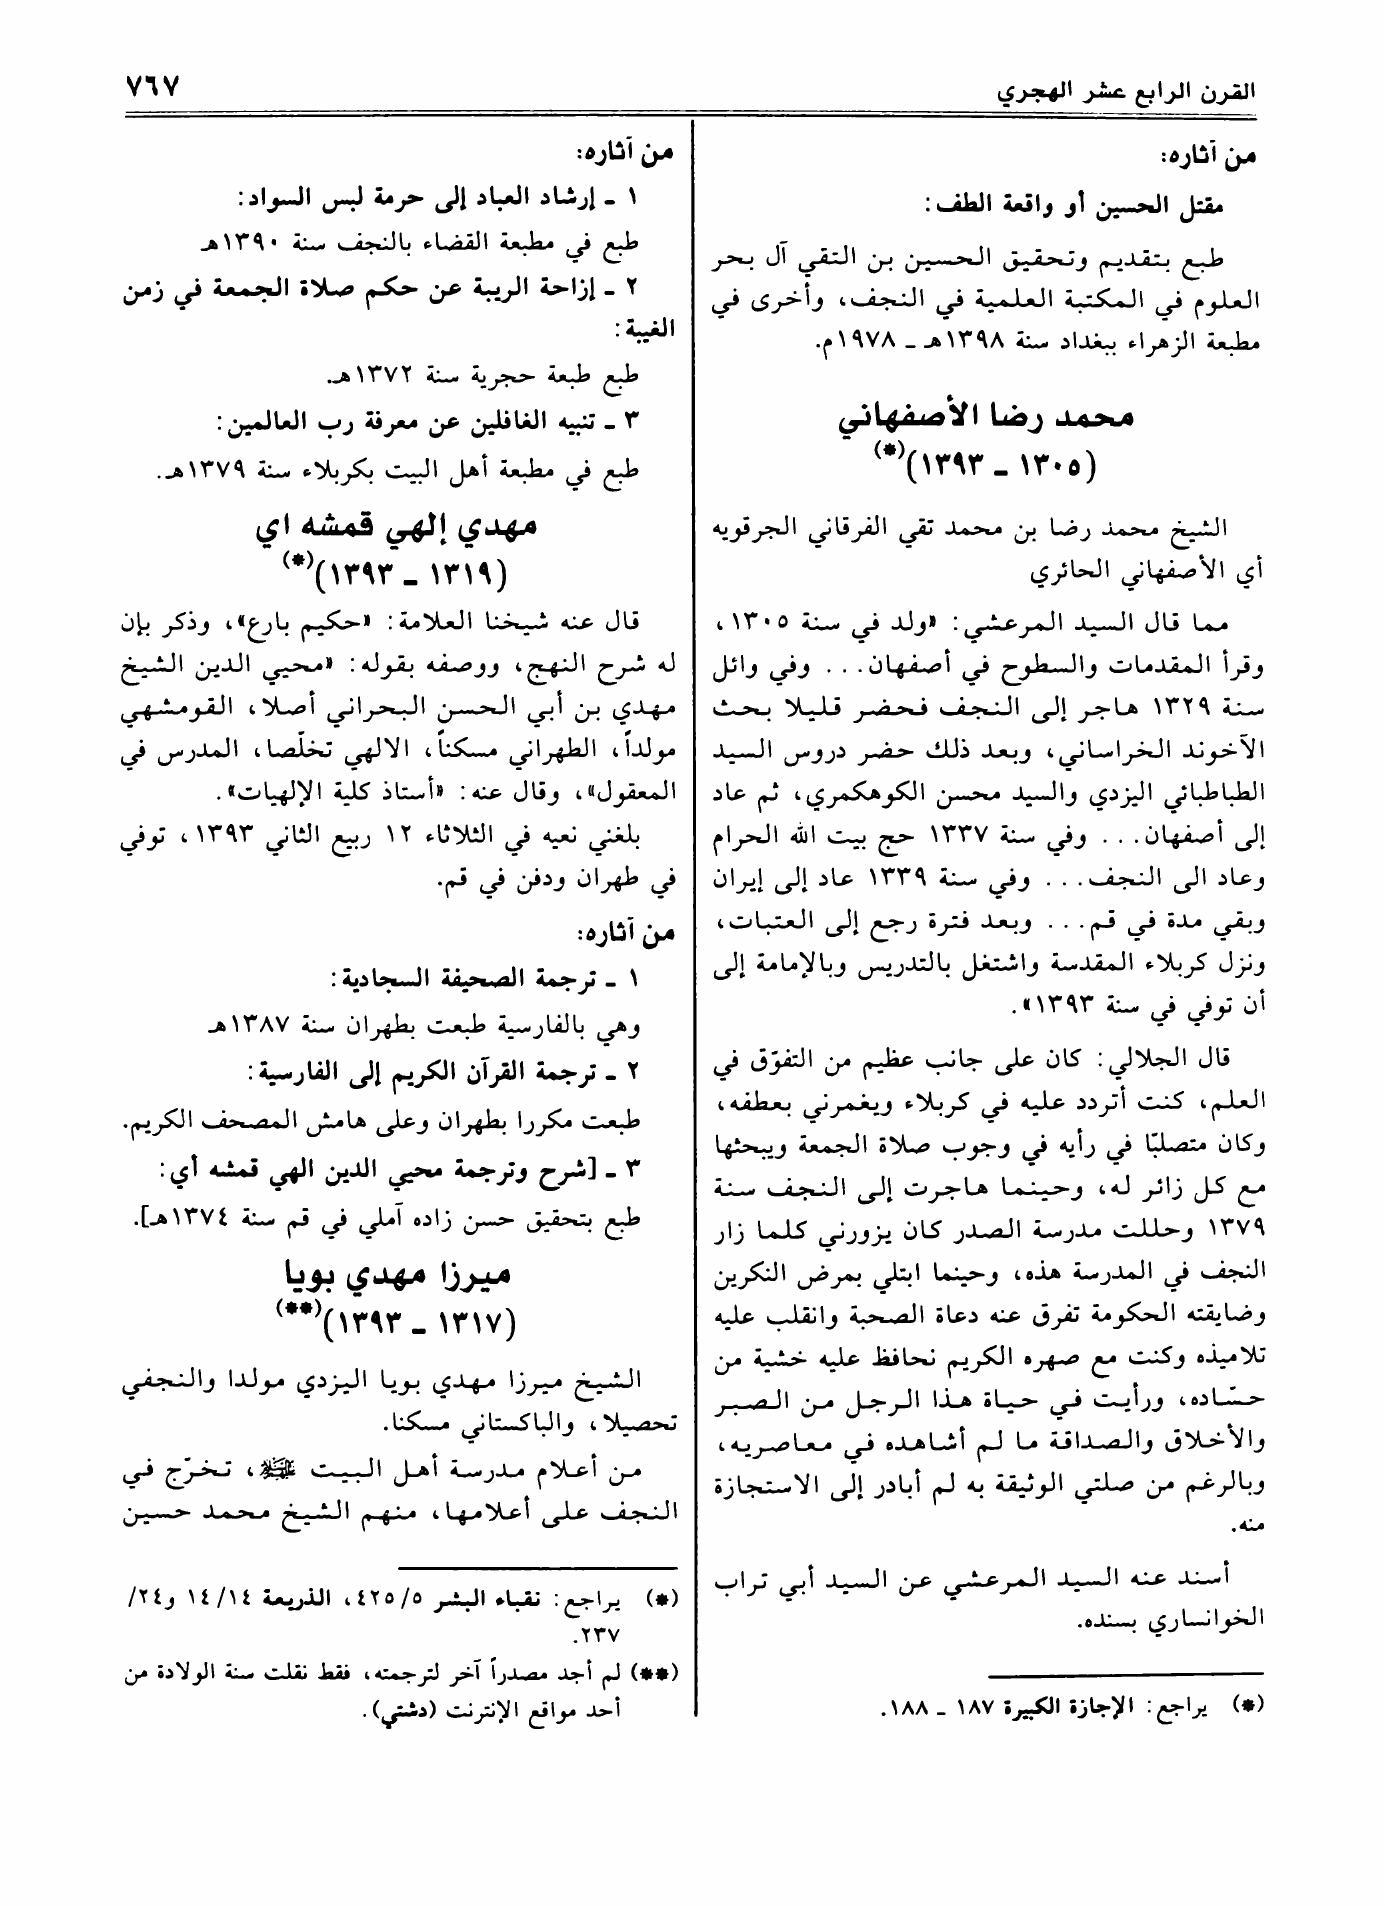 القرن الرابع عشر الهجري
٧٦٧
من آثاره:
مقتل الحسين أو واقعة الطف:
طبع بتقديم وتحقيق الحسين بن التقي آل بحر
العلوم في المكتبة العلمية في النجف، وأخرى في
مطبعة الزهراء ببغداد سنة ١٣٩٨هـ ـ ١٩٧٨م.
محمد رضا الأصفهاني
(١٣٠٥ ـ ١٣٩٣)(*)
الشيخ محمد رضا بن محمد تقي الفرقاني الجرقويه
أي الأصفهاني الحائري
مما قال السيد المرعشي: «ولد في سنة ١٣٠٥،
وقرأ المقدمات والسطوح في أصفهان... وفي وائل
سنة ١٣٢٩ هاجر إلى النجف فحضر قليلا بحث
الآخوند الخراساني، وبعد ذلك حضر دروس السيد
الطباطبائي اليزدي والسيد محسن الكوهكمري، ثم عاد
إلى أصفهان... وفي سنة ١٣٣٧ حج بيت الله الحرام
وعاد الى النجف... وفي سنة ١٣٣٩ عاد إلى إيران
وبقي مدة في قم... وبعد فترة رجع إلى العتبات،
ونزل كربلاء المقدسة واشتغل بالتدريس وبالإمامة إلى
أن توفي في سنة ١٣٩٣».
قال الجلالي: كان على جانب عظيم من التفوّق في
العلم، كنت أتردد عليه في كربلاء ويغمرني بعطفه،
وكان متصلبّا في رأيه في وجوب صلاة الجمعة ويبحثها
مع كل زائر له، وحينما هاجرت إلى النجف سنة
١٣٧٩ وحللت مدرسة الصدر كان يزورني كلما زار
النجف في المدرسة هذه، وحينما ابتلي بمرض النكرين
وضايقته الحكومة تفرق عنه دعاة الصحبة وانقلب عليه
تلاميذه وكنت مع صهره الكريم نحافظ عليه خشية من
حسّاده، ورأيت في حياة هذا الرجل من الصبر
والأخلاق والصداقة ما لم أشاهده في معاصريه،
وبالرغم من صلتي الوثيقة به لم أبادر إلى الاستجازة
منه.
أسند عنه السيد المرعشي عن السيد أبي تراب
الخوانساري بسنده.
(*) يراجع: الإجازة الكبيرة ١٨٧ ـ ١٨٨.
من آثاره:
١ ـ إرشاد العباد إلى حرمة لبس السواد:
طبع في مطبعة القضاء بالنجف سنة ١٣٩٠هـ
٢ ـ إزاحة الريبة عن حكم صلاة الجمعة في زمن
الغيبة:
طبع طبعة حجرية سنة ١٣٧٢هـ.
٣ ـ تنبيه الغافلين عن معرفة رب العالمين:
طبع في مطبعة أهل البيت بكربلاء سنة ١٣٧٩هـ.
مهدي إلهي قمشه اي
(١٣١٩ ـ ١٣٩٣)(*)
قال عنه شيخنا العلامة: «حكيم بارع»، وذكر بإن
له شرح النهج، ووصفه بقوله: «محيي الدين الشيخ
مهدي بن أبي الحسن البحراني أصلا، القومشهي
مولداً، الطهراني مسكناً، الالهي تخلّصا، المدرس في
المعقول»، وقال عنه: «أستاذ كلية الإلهيات».
بلغني نعيه في الثلاثاء ١٢ ربيع الثاني ١٣٩٣، توفي
في طهران ودفن في قم.
من آثاره:
١ ـ ترجمة الصحيفة السجادية:
وهي بالفارسية طبعت بطهران سنة ١٣٨٧هـ
٢ ـ ترجمة القرآن الكريم إلى الفارسية:
طبعت مكررا بطهران وعلى هامش المصحف الكريم.
٣ ـ [شرح وترجمة محيي الدين الهي قمشه أي:
طبع بتحقيق حسن زاده آملي في قم سنة ١٣٧٤هـ].
ميرزا مهدي بويا
(١٣١٧ ـ ١٣٩٣)(**)
الشيخ ميرزا مهدي بويا اليزدي مولدا والنجفي
تحصيلا، والباكستاني مسكنا.
من أعلام مدرسة أهل البيت ، تخرّج في
النجف على أعلامها، منهم الشيخ محمد حسين
(*) يراجع: نقباء البشر ٥/ ٤٢٥، الذريعة ١٤/ ١٤ و٢٤/
٢٣٧.
(**) لم أجد مصدراً آخر لترجمته، فقط نقلت سنة الولادة من
أحد مواقع الإنترنت (دشتي).